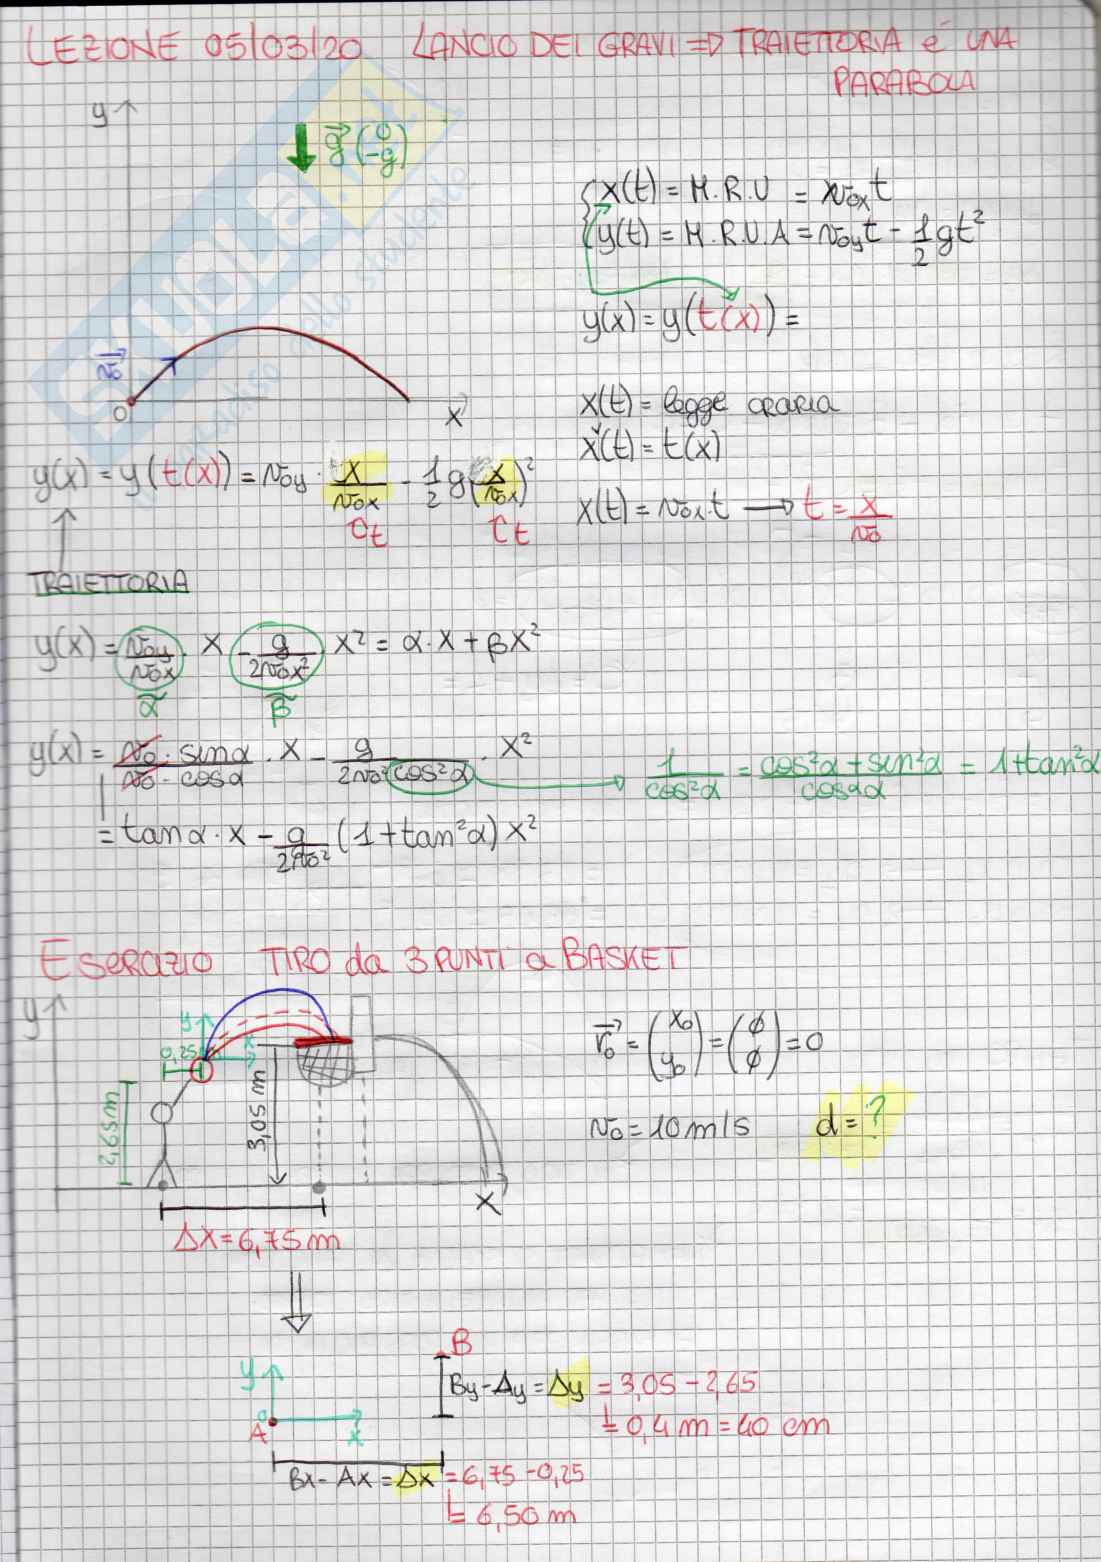 LEZIONE 05/03/20 LANCIO DEI GRAVI => TRAIETTORIA é UNA
PARABOLA
y
g⃗ (0 -g)
x(t) = M.R.U = v₀ₓt
y(t) = M.R.U.A = v₀yt - 1/2 gt²
y(x) = y(t(x)) =
v₀
0
x
x(t) = legge oraria
x(t) = t(x)
y(x) = y(t(x)) = v₀y · x/v₀x - 1/2 g(x/v₀x)²
x(t) = v₀x·t → t = x/v₀
t t
TRAIETTORIA
y(x) = v₀y/v₀x · x - g/2v₀x² x² = α·x + βx²
α β
y(x) = v₀·sinα/v₀·cosα · x - g/2v₀²cos²α · x²
1/cos²α = cos²α + sin²α/cos²α = 1+tan²α
= tanα·x - g/2v₀² (1+tan²α) x²
ESERCIZIO TIRO da 3 PUNTI a BASKET
y
y
x
0,25
2,65m
3,05 m
x
r⃗₀ = (x₀ y₀) = (ϕ ϕ) = 0
v₀ = 10 m/s d = ?
Δx = 6,75 m
B
y
By - Ay = Δy = 3,05 - 2,65
0,4 m = 40 cm
A
x
Bx - Ax = Δx = 6,75 - 0,25
6,50 m
SKUOLA.net